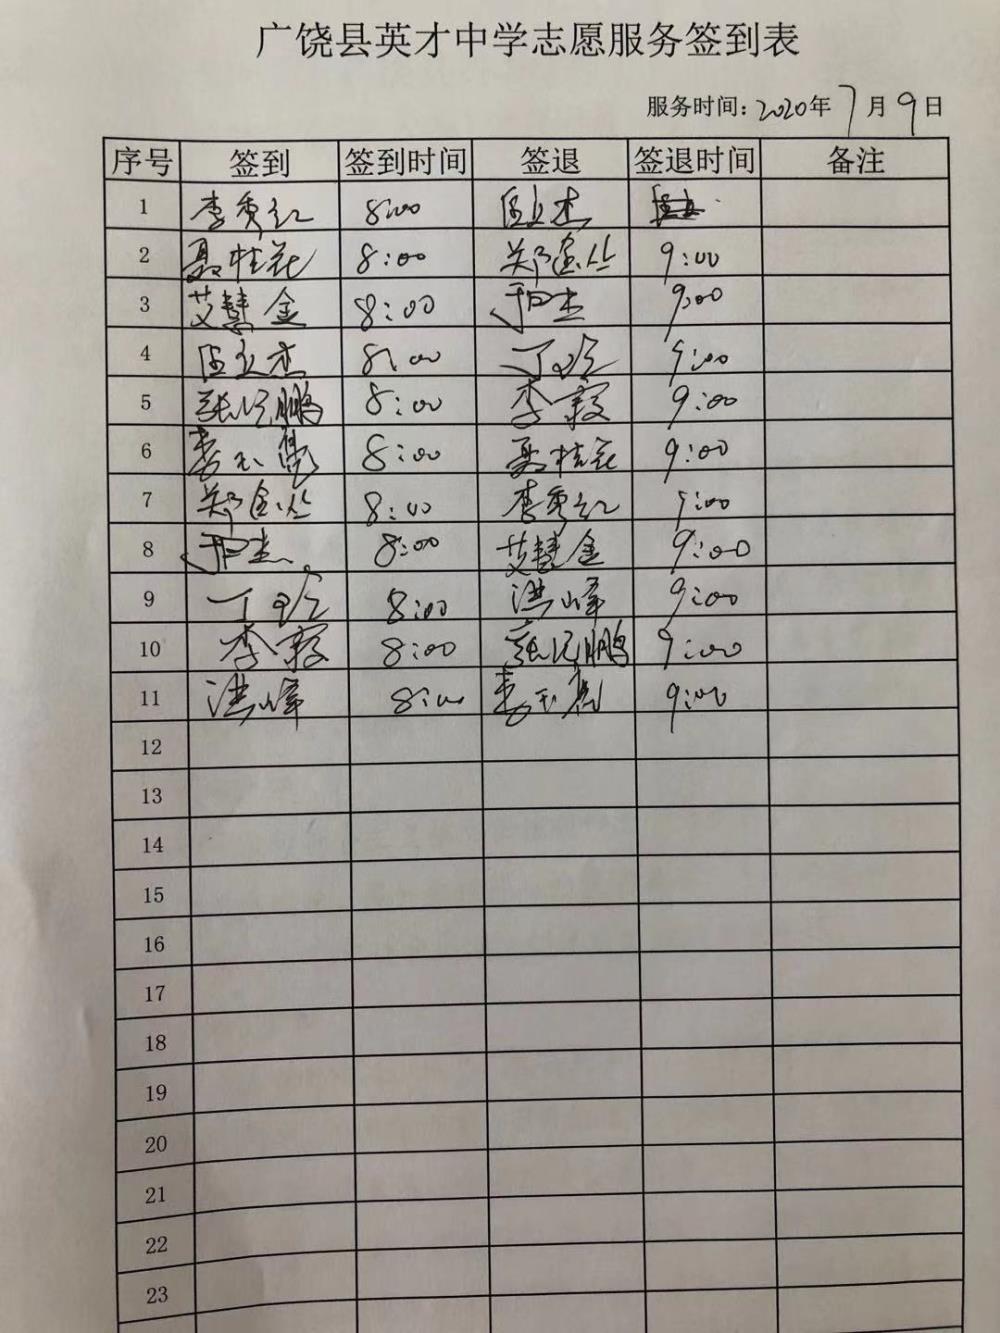 广饶县英才中学志愿服务签到表
服务时间: 2020年7月9日
序号 签到 签到时间 签退 签退时间 备注
1 李秀红 8:00
2 聂桂花 8:00 郑金丛 9:00
3 艾慧金 8:00 9:00
4 8:00 丁玲 9:00
5 鹏 8:00 李毅 9:00
6 8:00 聂桂花 9:00
7 郑金丛 8:00 李秀红 9:00
8 8:00 艾慧金 9:00
9 丁玲 8:00 洪峰 9:00
10 李毅 8:00 鹏 9:00
11 洪峰 8:00 9:00
12
13
14
15
16
17
18
19
20
21
22
23